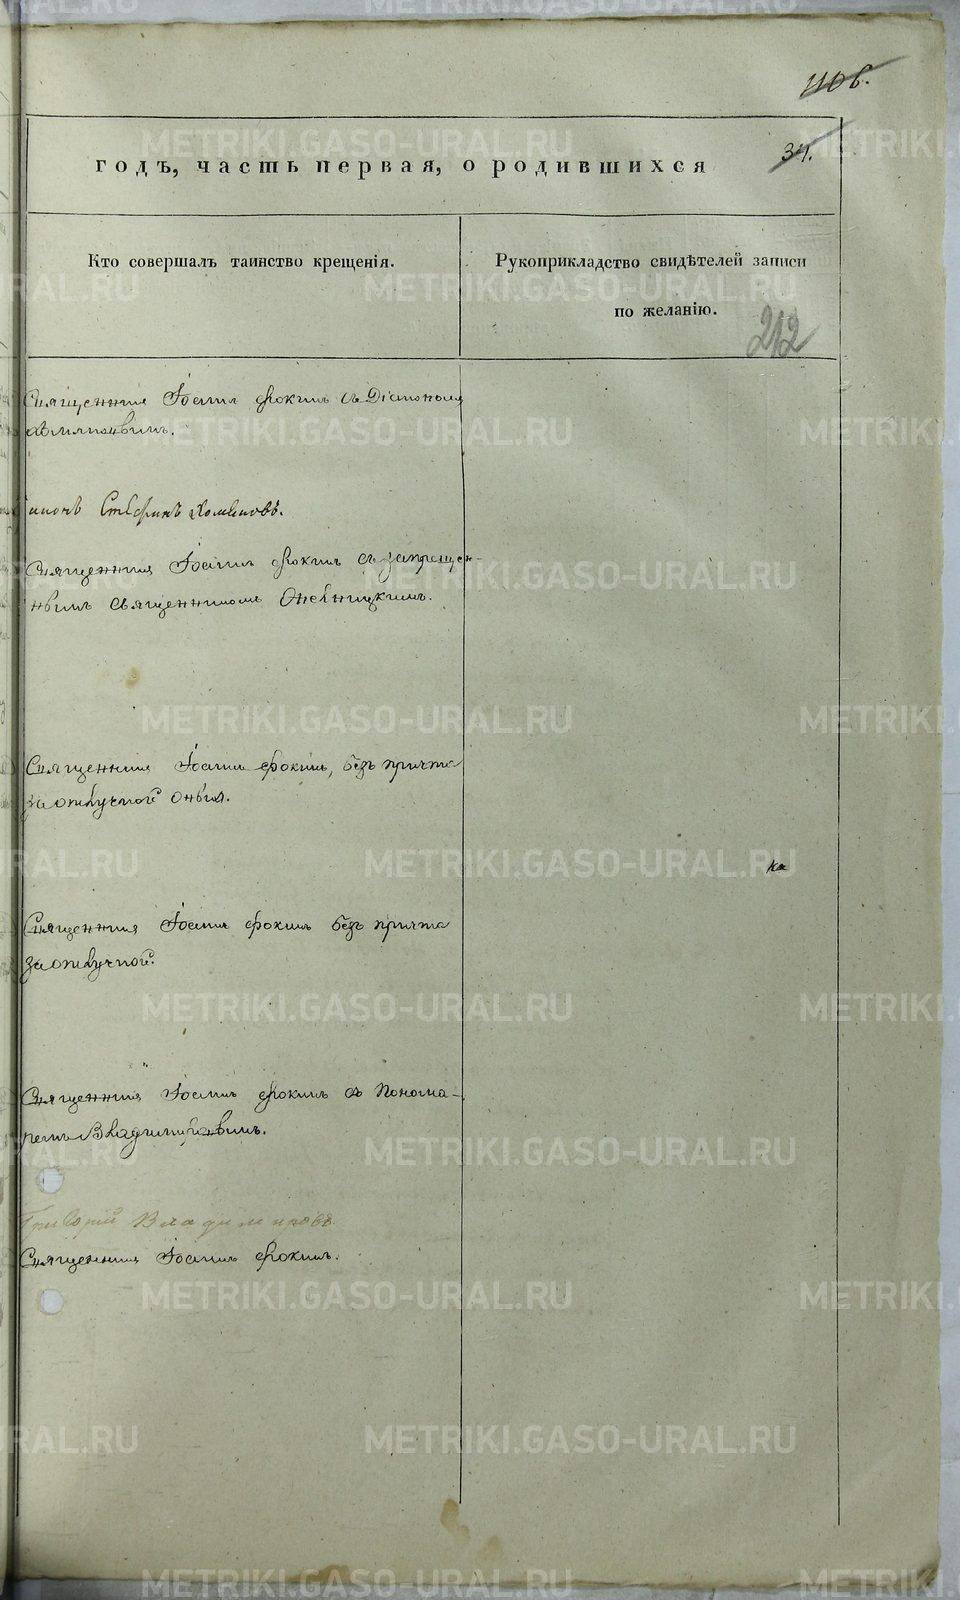 1106.
34.
годъ, часть первая, о родившихся
Кто совершалъ таинство крещенія.
Рукоприкладство свидѣтелей записи
по желанію.
212
Священник Іоаннъ Фокинъ съ Діакономъ
діаконъ Стефанъ
Священник Іоаннъ Фокинъ съ запрещен-
нымъ священникомъ
Священник Іоаннъ Фокинъ, безъ причта
за отлучкой оныя.
Священник Іоаннъ Фокинъ безъ причта
за отлучкой.
Священник Іоаннъ Фокинъ съ Понома-
ремъ Владимировымъ.
Григорій Владимировъ
Священник Іоаннъ Фокинъ.
METRIKI.GASO-URAL.RU